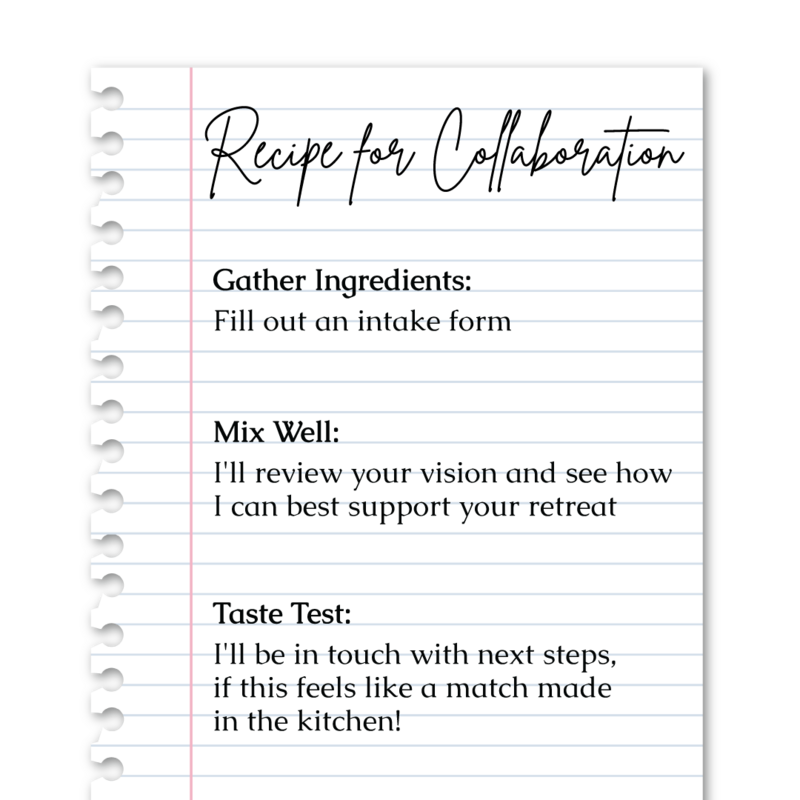 Recipe for Collaboration
Gather Ingredients:
Fill out an intake form
Mix Well:
I'll review your vision and see how
I can best support your retreat
Taste Test:
I'll be in touch with next steps,
if this feels like a match made
in the kitchen!